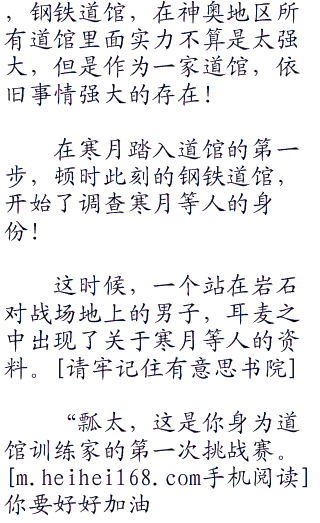 ，钢铁道馆，在神奥地区所
有道馆里面实力不算是太强
大，但是作为一家道馆，依
旧事情强大的存在！
在寒月踏入道馆的第一
步，顿时此刻的钢铁道馆，
开始了调查寒月等人的身
份！
这时候，一个站在岩石
对战场地上的男子，耳麦之
中出现了关于寒月等人的资
料。[请牢记住有意思书院]
“瓢太，这是你身为道
馆训练家的第一次挑战赛。
[m.heihei168.com手机阅读]
你要好好加油